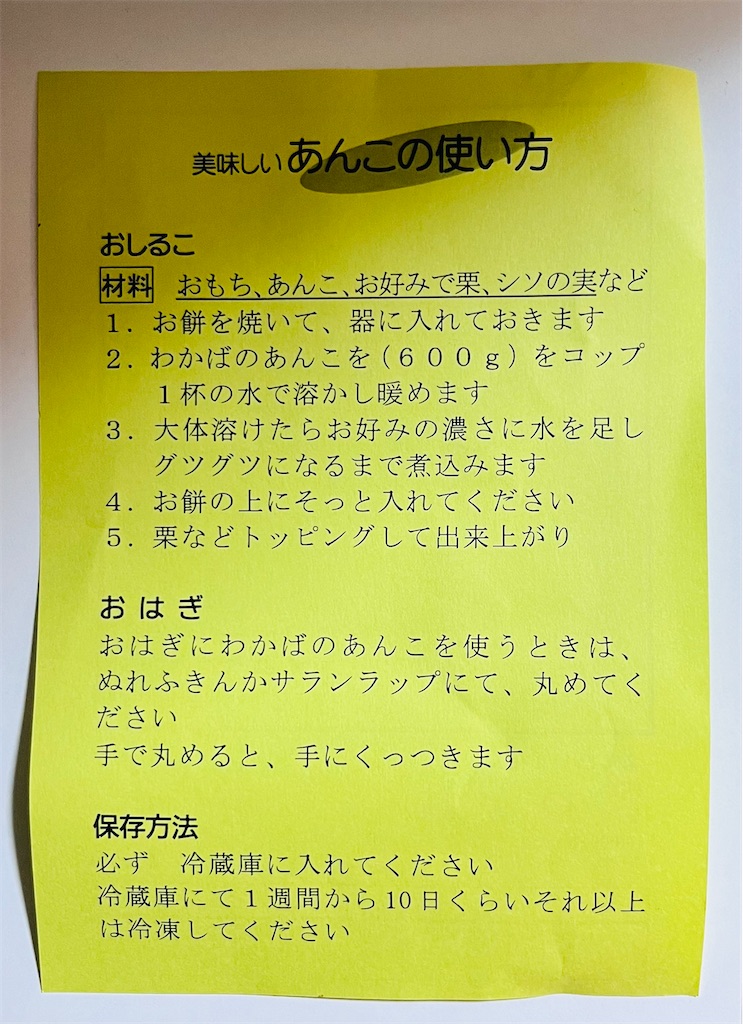 美味しいあんこの使い方
おしるこ
材料 おもち、あんこ、お好みで栗、シソの実など
1. お餅を焼いて、器に入れておきます
2. わかばのあんこを(600g)をコップ
1杯の水で溶かし暖めます
3. 大体溶けたらお好みの濃さに水を足し
グツグツになるまで煮込みます
4. お餅の上にそっと入れてください
5. 栗などトッピングして出来上がり
おはぎ
おはぎにわかばのあんこを使うときは、
ぬれふきんかサランラップにて、丸めてく
ださい
手で丸めると、手にくっつきます
保存方法
必ず 冷蔵庫に入れてください
冷蔵庫にて1週間から10日くらいそれ以上
は冷凍してください